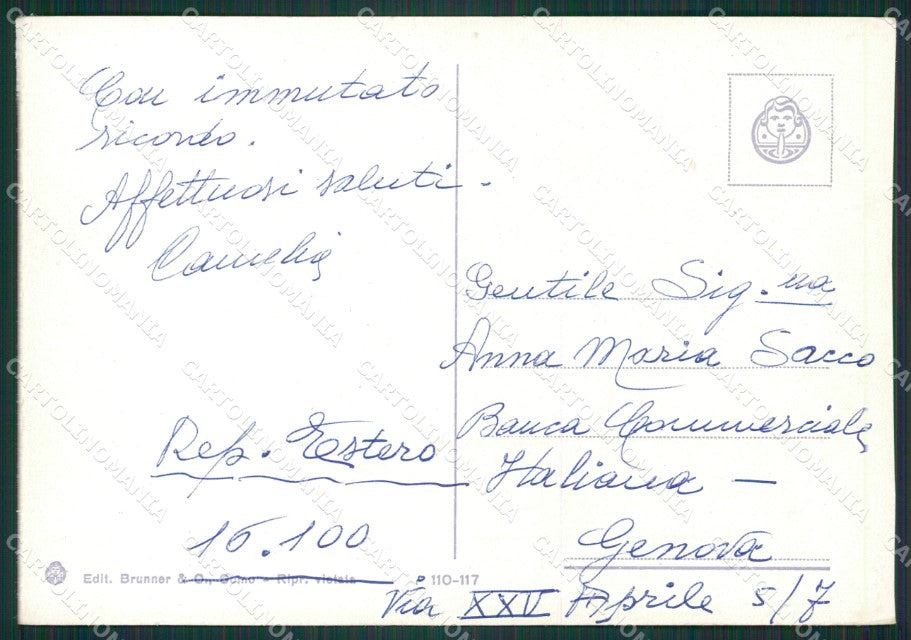 Con immutato
ricordo.
Affettuosi saluti.
Camelia
Gentile Sig.na
Anna Maria Sacco
Banca Commerciale
Italiana —
Rep. Estero
16.100
Genova
Via XXV Aprile 5/7
Edit. Brunner & C., Como - Ripr. vietata
110-117
CARTOLINOMANIA